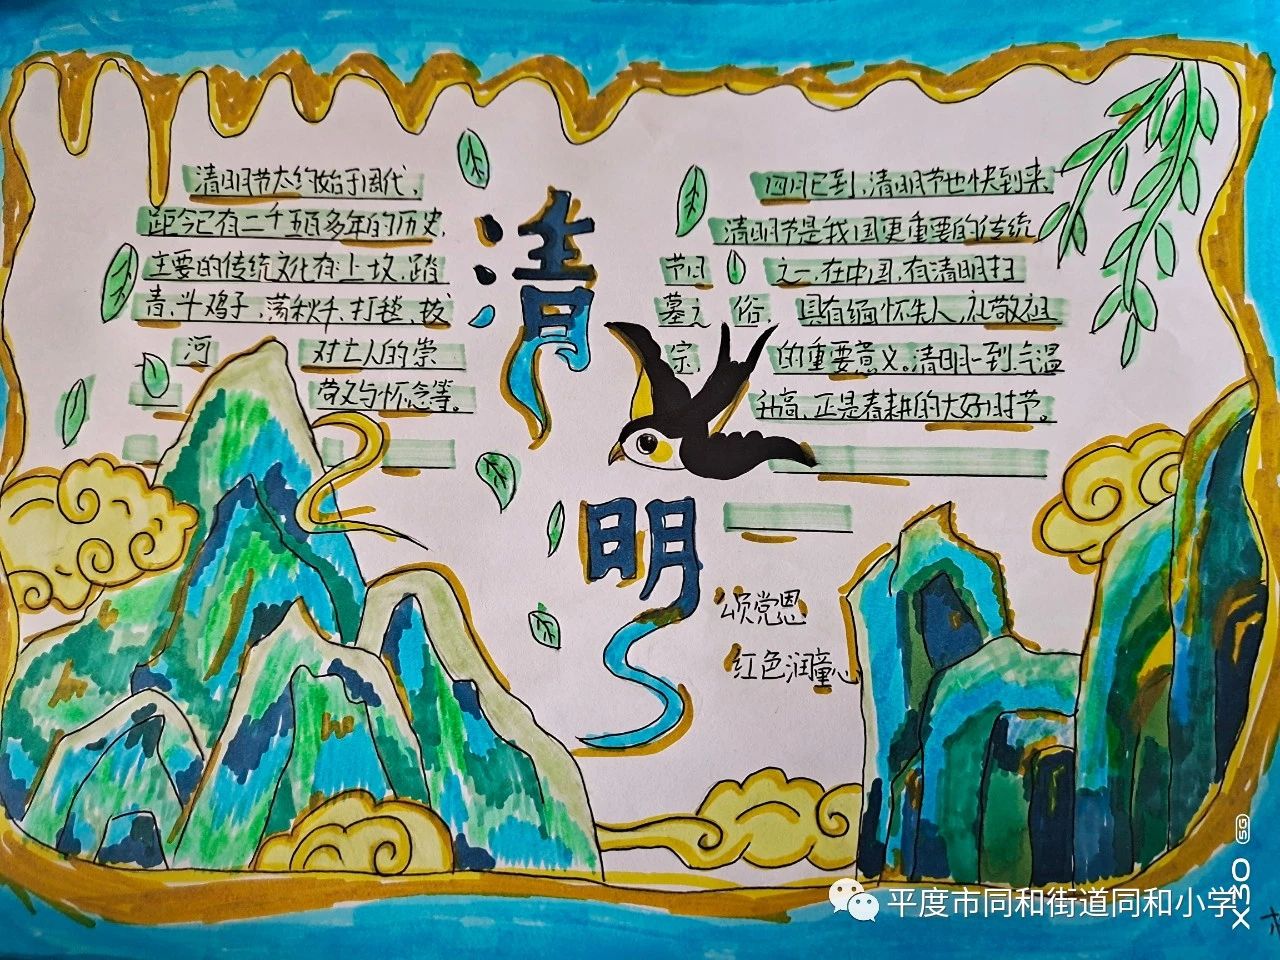 清明节大约始于周代，
距今已有二千五百多年的历史，
主要的传统文化有：上坟、踏
青、斗鸡子，荡秋千、打毯、拔
河 对亡人的崇
敬与怀念等。
清
明
四月已到，清明节也快到来，
清明节是我国更重要的传统
节日之一，在中国，有清明扫
墓之俗，具有缅怀先人，礼敬祖
宗，的重要意义。清明一到，气温
升高，正是春耕的大好时节。
颂党恩
红色润童心
平度市同和街道同和小学
X30 5G